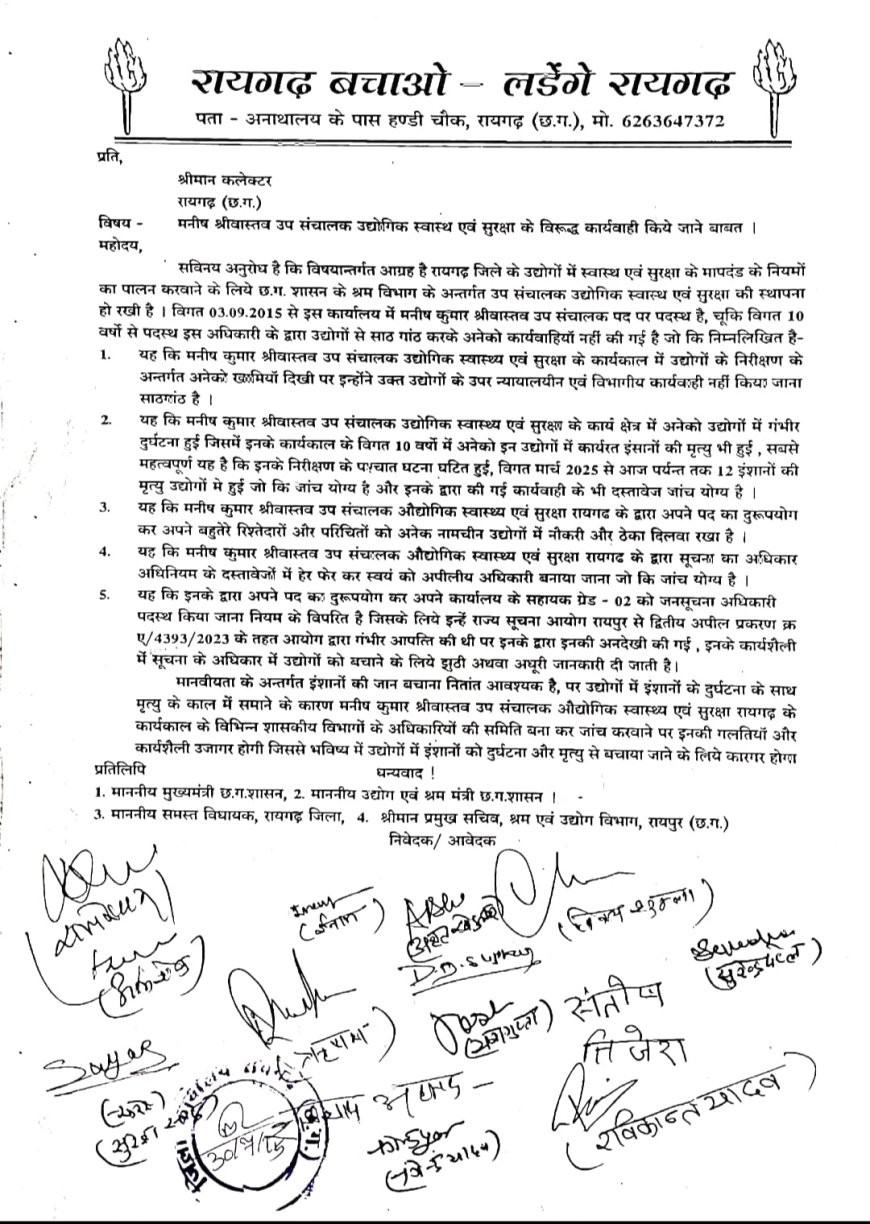 रायगढ़ बचाओ – लडेंगे रायगढ़
पता - अनाथालय के पास हण्डी चौक, रायगढ़ (छ.ग.), मो. 6263647372
प्रति,
श्रीमान कलेक्टर
रायगढ़ (छ.ग.)
विषय - मनीष श्रीवास्तव उप संचालक उद्योगिक स्वास्थ एवं सुरक्षा के विरूद्ध कार्यवाही किये जाने बाबत ।
महोदय,
सविनय अनुरोध है कि विषयान्तर्गत आग्रह है रायगढ़ जिले के उद्योगों में स्वास्थ एवं सुरक्षा के मापदंड के नियमों
का पालन करवाने के लिये छ.ग. शासन के श्रम विभाग के अन्तर्गत उप संचालक उद्योगिक स्वास्थ एवं सुरक्षा की स्थापना
हो रखी है । विगत 03.09.2015 से इस कार्यालय में मनीष कुमार श्रीवास्तव उप संचालक पद पर पदस्थ है, चूकि विगत 10
वर्षो से पदस्थ इस अधिकारी के द्वारा उद्योगों से साठ गांठ करके अनेको कार्यवाहियाँ नहीं की गई है जो कि निम्नलिखित है-
1. यह कि मनीष कुमार श्रीवास्तव उप संचालक उद्योगिक स्वास्थ्य एवं सुरक्षा के कार्यकाल में उद्योगों के निरीक्षण के
अन्तर्गत अनेको खामियाँ दिखी पर इन्होंने उक्त उद्योगों के उपर न्यायालयीन एवं विभागीय कार्यवाही नहीं किया जाना
साठगांठ है ।
2. यह कि मनीष कुमार श्रीवास्तव उप संचालक उद्योगिक स्वास्थ्य एवं सुरक्षा के कार्य क्षेत्र में अनेको उद्योगों में गंभीर
दुर्घटना हुई जिसमें इनके कार्यकाल के विगत 10 वर्षो में अनेको इन उद्योगों में कार्यरत इंसानों की मृत्यु भी हुई , सबसे
महत्वपूर्ण यह है कि इनके निरीक्षण के पश्चात घटना घटित हुई, विगत मार्च 2025 से आज पर्यन्त तक 12 इंशानों की
मृत्यु उद्योगों मे हुई जो कि जांच योग्य है और इनके द्वारा की गई कार्यवाही के भी दस्तावेज जांच योग्य है ।
3. यह कि मनीष कुमार श्रीवास्तव उप संचालक औद्योगिक स्वास्थ्य एवं सुरक्षा रायगढ के द्वारा अपने पद का दुरूपयोग
कर अपने बहुतेरे रिश्तेदारों और परिचितों को अनेक नामचीन उद्योगों में नौकरी और ठेका दिलवा रखा है ।
4. यह कि मनीष कुमार श्रीवास्तव उप संचालक औद्योगिक स्वास्थ्य एवं सुरक्षा रायगढ के द्वारा सूचना का अधिकार
अधिनियम के दस्तावेजों में हेर फेर कर स्वयं को अपीलीय अधिकारी बनाया जाना जो कि जांच योग्य है ।
5. यह कि इनके द्वारा अपने पद का दुरूपयोग कर अपने कार्यालय के सहायक ग्रेड - 02 को जनसूचना अधिकारी
पदस्थ किया जाना नियम के विपरित है जिसके लिये इन्हें राज्य सूचना आयोग रायपुर से द्वितीय अपील प्रकरण क्र
ए/4393/2023 के तहत आयोग द्वारा गंभीर आपत्ति की थी पर इनके द्वारा इनकी अनदेखी की गई , इनके कार्यशैली
में सूचना के अधिकार में उद्योगों को बचाने के लिये झुठी अथवा अधूरी जानकारी दी जाती है।
मानवीयता के अन्तर्गत इंशानों की जान बचाना नितांत आवश्यक है, पर उद्योगों में इंशानों के दुर्घटना के साथ
मृत्यु के काल में समाने के कारण मनीष कुमार श्रीवास्तव उप संचालक औद्योगिक स्वास्थ्य एवं सुरक्षा रायगढ़ के
कार्यकाल के विभिन्न शासकीय विभागों के अधिकारियों की समिति बना कर जांच करवाने पर इनकी गलतियाँ और
कार्यशैली उजागर होगी जिससे भविष्य में उद्योगों में इंशानों को दुर्घटना और मृत्यु से बचाया जाने के लिये कारगर होगा
प्रतिलिपि धन्यवाद !
1. माननीय मुख्यमंत्री छ.ग.शासन, 2. माननीय उद्योग एवं श्रम मंत्री छ.ग.शासन । -
3. माननीय समस्त विधायक, रायगढ़ जिला, 4. श्रीमान प्रमुख सचिव, श्रम एवं उद्योग विभाग, रायपुर (छ.ग.)
निवेदक/ आवेदक
संतोष
रविकान्त यादव